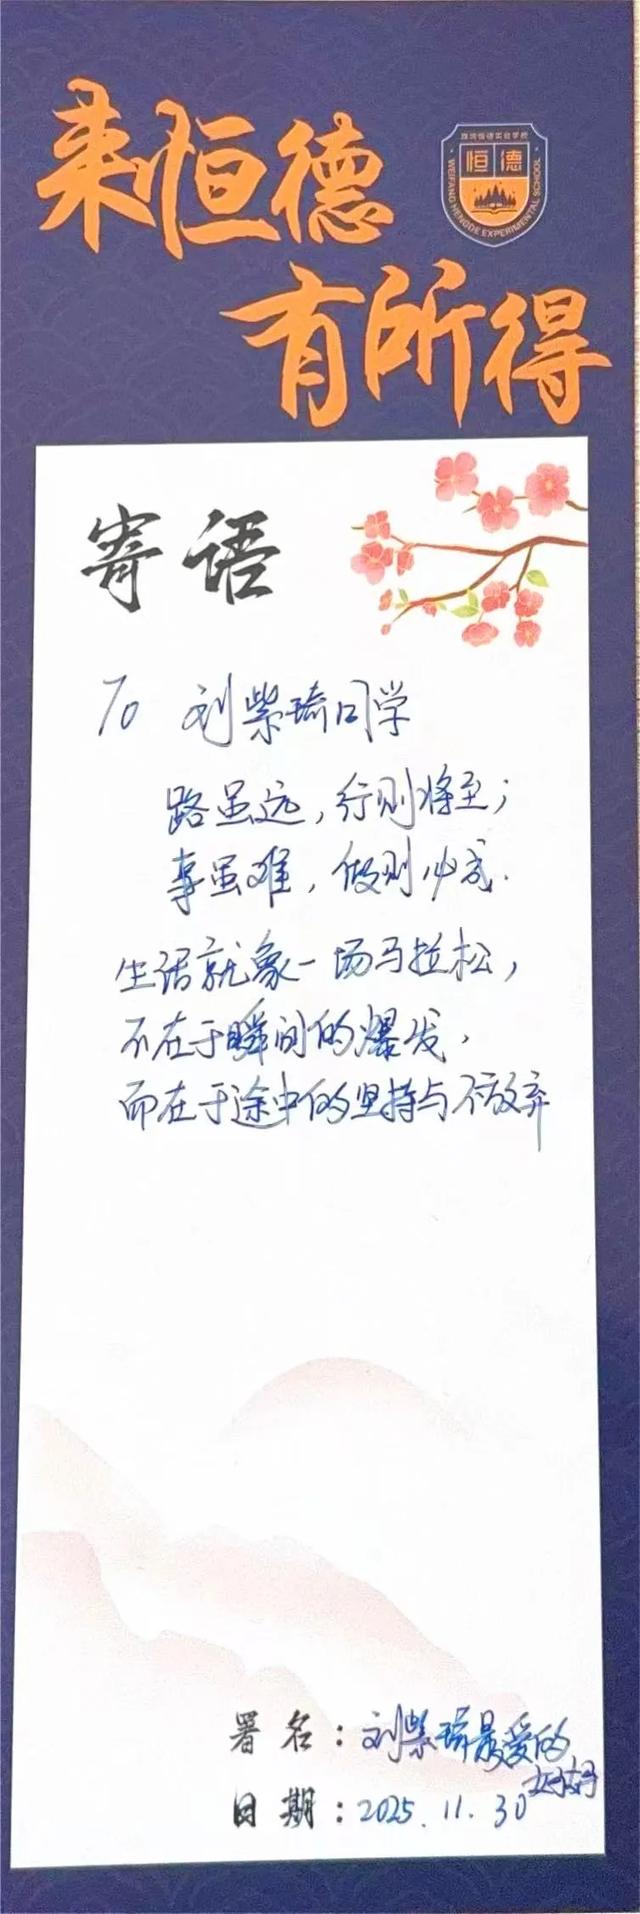 来恒德
潍坊恒德实验学校
恒德
WEIFANG HENGDE EXPERIMENTAL SCHOOL
有所得
寄语
To 刘紫琦同学
路虽远,行则将至;
事虽难,做则必成.
生活就象一场马拉松,
不在于瞬间的爆发,
而在于途中的坚持与不放弃
署名:刘紫琦最爱的
日期:2025.11.30